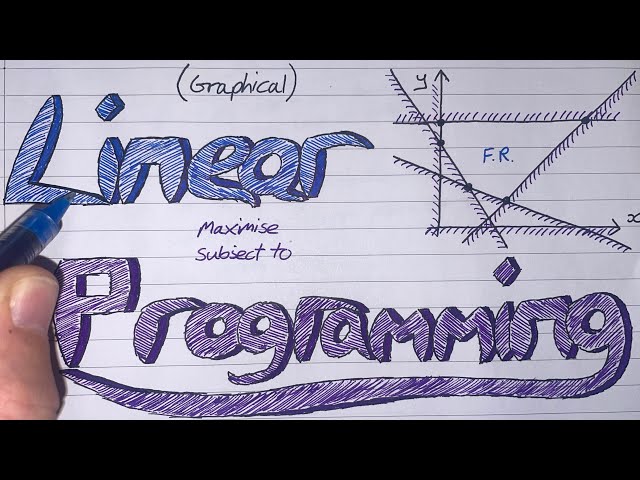 (Graphical)
Linear
y
F.R.
x
Maximise
Subject to
Programming